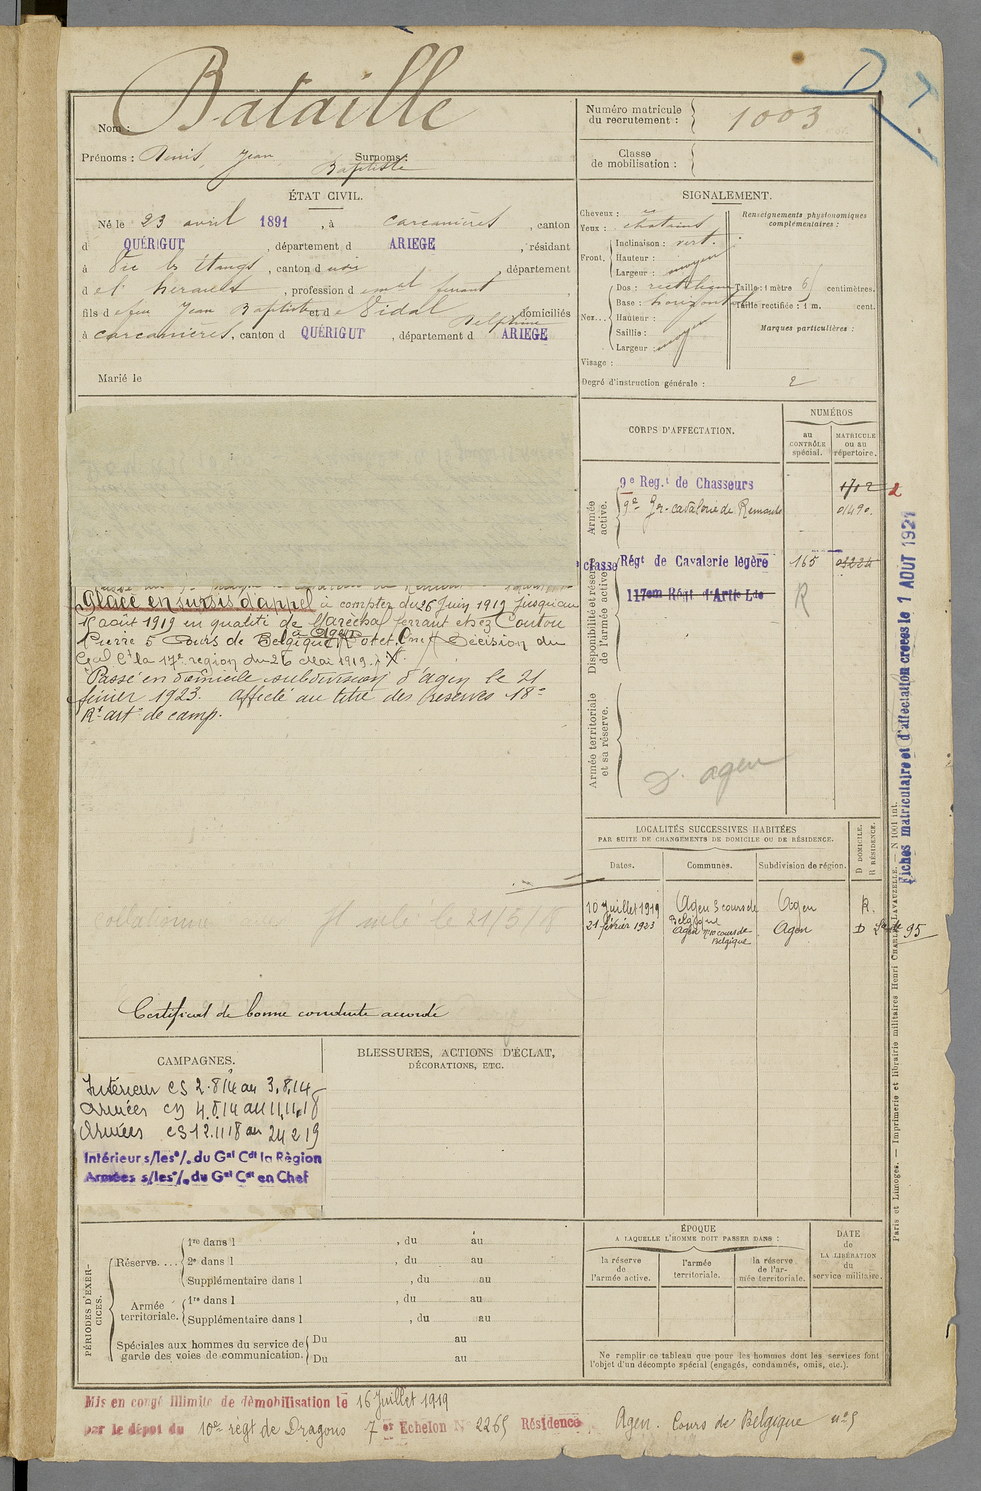 Bataille
Nom :
Prénoms : Denis Jean Baptiste Surnoms :
Numéro matricule
du recrutement : 1003
Classe
de mobilisation :
ÉTAT CIVIL.
Né le 23 avril 1891, à Carcanières, canton
d QUÉRIGUT, département d ARIEGE, résidant
à , canton d , département
d , profession d ferrant
fils de feu Jean Baptiste et de Vidal Delphine domiciliés
à Carcanières, canton d QUÉRIGUT, département d ARIEGE
Marié le
SIGNALEMENT.
Cheveux : châtains
Yeux :
Front. Inclinaison : vert.
Hauteur :
Largeur : moyen
Nez... Dos : rectiligne
Base : horizontal
Hauteur :
Saillie : moyen
Largeur :
Visage :
Renseignements physionomiques
complémentaires :
Taille : 1 mètre 61 centimètres.
Taille rectifiée : 1 m. cent.
Marques particulières :
Degré d'instruction générale : 2
CORPS D'AFFECTATION.
NUMÉROS
au
CONTRÔLE
spécial.
MATRICULE
ou au
répertoire.
Armée
active.
9e Reg.t de Chasseurs 1712
9e Gr. cavalerie de Remonte 01490.
Disponibilité et réserve
de l'armée active.
classe Régt de Cavalerie légère 165
117em Régt d'Artie Lde R
Armée territoriale
et sa réserve.
D. agen
Placé en sursis d'appel à compter du 26 Juin 1919 jusqu'au
août 1919 en qualité de Maréchal ferrant chez Coutou
Pierre 5 Cours de Belgique à Agen Décision du
Gal Ct la 17e région du 26 Mai 1919.
Passé en domicile subdivision d'agen le 21
février 1923. Affecté au titre des Réserves 18e
Rt artie de camp.
LOCALITÉS SUCCESSIVES HABITÉES
PAR SUITE DE CHANGEMENTS DE DOMICILE OU DE RÉSIDENCE.
Dates. Communes. Subdivision de région. D DOMICILE. R RÉSIDENCE.
10 Juillet 1919 Agen 5 cours de Belgique Agen R.
21 février 1923 Agen n°10 cours de Belgique Agen D
95
21/5/18
Certificat de bonne conduite accordé
CAMPAGNES.
Intérieur CS 2.8.14 au 3.8.14
Armées CD 4.8.14 au 11.11.18
Armées CS 12.11.18 au 24 2 19
Intérieur s/les o/. du Gal Cdt la Région
Armées s/les o/. du Gal Cdt en Chef
BLESSURES, ACTIONS D'ÉCLAT,
DÉCORATIONS, ETC.
PÉRIODES D'EXER-
CICES.
Réserve.... 1re dans l , du au
2e dans l , du au
Supplémentaire dans l , du au
Armée
territoriale. 1re dans l , du au
Supplémentaire dans l , du au
Spéciales aux hommes du service de
garde des voies de communication. Du au
Du au
ÉPOQUE
A LAQUELLE L'HOMME DOIT PASSER DANS :
la réserve
de
l'armée active.
l'armée
territoriale.
la réserve
de l'ar-
mée territoriale.
DATE
de
LA LIBÉRATION
du
service militaire.
Ne remplir ce tableau que pour les hommes dont les services font
l'objet d'un décompte spécial (engagés, condamnés, omis, etc.).
Mis en congé illimité de démobilisation le 16 Juillet 1919
par le dépot du 10e régt de Dragons 7 er Echelon N° 2265 Résidence Agen. Cours de Belgique n°5
Fiches matriculaire et d'affectation creées le 1 AOUT 1921
Paris et Limoges. — Imprimerie et librairie militaires Henri CHARLES-LAVAUZELLE. — N 1001 int.